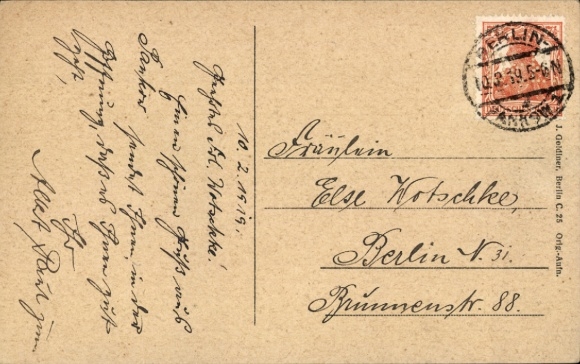 10. 2. 1919.
Geehrtes Frl. Wotschke!
Einen schönen Gruß aus
Pankow sendet Ihnen in der
Hoffnung, daß es Ihnen gut
geht,
Ihr
Albert Paul
BERLIN
10.2.19.5-6N
Fräulein
Else Wotschke,
Berlin N. 31.
Brunnenstr. 88.
J. Goldiner, Berlin C. 25 Orig.-Aufn.